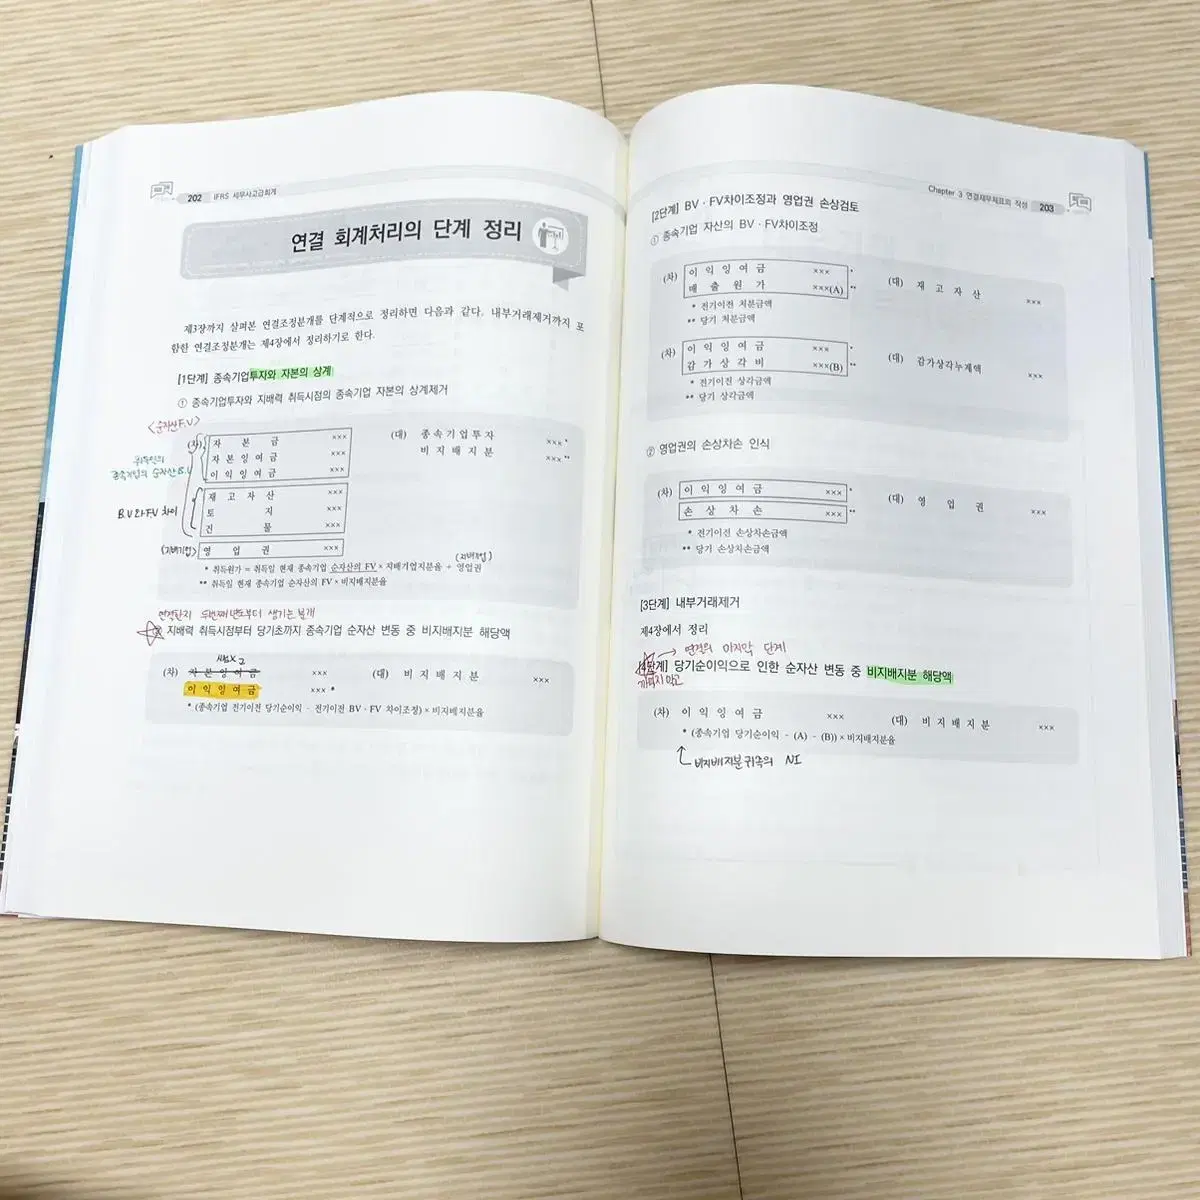 202 IFRS 세무사고급회계
연결 회계처리의 단계 정리
제3장까지 살펴본 연결조정분개를 단계적으로 정리하면 다음과 같다. 내부거래제거까지 포
함한 연결조정분개는 제4장에서 정리하기로 한다.
[1단계] 종속기업투자와 자본의 상계
① 종속기업투자와 지배력 취득시점의 종속기업 자본의 상계제거
<순자산F.V>
(차) 자 본 금 ××× (대) 종속기업투자 ××× *
자본잉여금 ××× 비지배지분 ××× **
이익잉여금 ×××
취득일의
종속기업의 순자산B.V
재 고 자 산 ×××
토 지 ×××
건 물 ×××
B.V와 F.V 차이
(지배기업) 영 업 권 ×××
(지배기업)
* 취득원가 = 취득일 현재 종속기업 순자산의 FV × 지배기업지분율 + 영업권
** 취득일 현재 종속기업 순자산의 FV × 비지배지분율
연결한지 두번째년도부터 생기는 분개
② 지배력 취득시점부터 당기초까지 종속기업 순자산 변동 중 비지배지분 해당액
(차) 자본잉여금 ××× (대) 비지배지분 ×××
이익잉여금 ××× *
* (종속기업 전기이전 당기순이익 - 전기이전 BV · FV 차이조정) × 비지배지분율
Chapter 3 연결재무제표의 작성 203
[2단계] BV · FV차이조정과 영업권 손상검토
① 종속기업 자산의 BV · FV차이조정
(차) 이익잉여금 ××× * (대) 재고자산 ×××
매출원가 ×××(A) **
* 전기이전 처분금액
** 당기 처분금액
(차) 이익잉여금 ××× * (대) 감가상각누계액 ×××
감가상각비 ×××(B) **
* 전기이전 상각금액
** 당기 상각금액
② 영업권의 손상차손 인식
(차) 이익잉여금 ××× * (대) 영업권 ×××
손상차손 ××× **
* 전기이전 손상차손금액
** 당기 손상차손금액
[3단계] 내부거래제거
제4장에서 정리
→ 연결의 마지막 단계
[4단계] 당기순이익으로 인한 순자산 변동 중 비지배지분 해당액
까먹지 말고
(차) 이익잉여금 ××× (대) 비지배지분 ×××
* (종속기업 당기순이익 - (A) - (B)) × 비지배지분율
비지배지분귀속의 NI